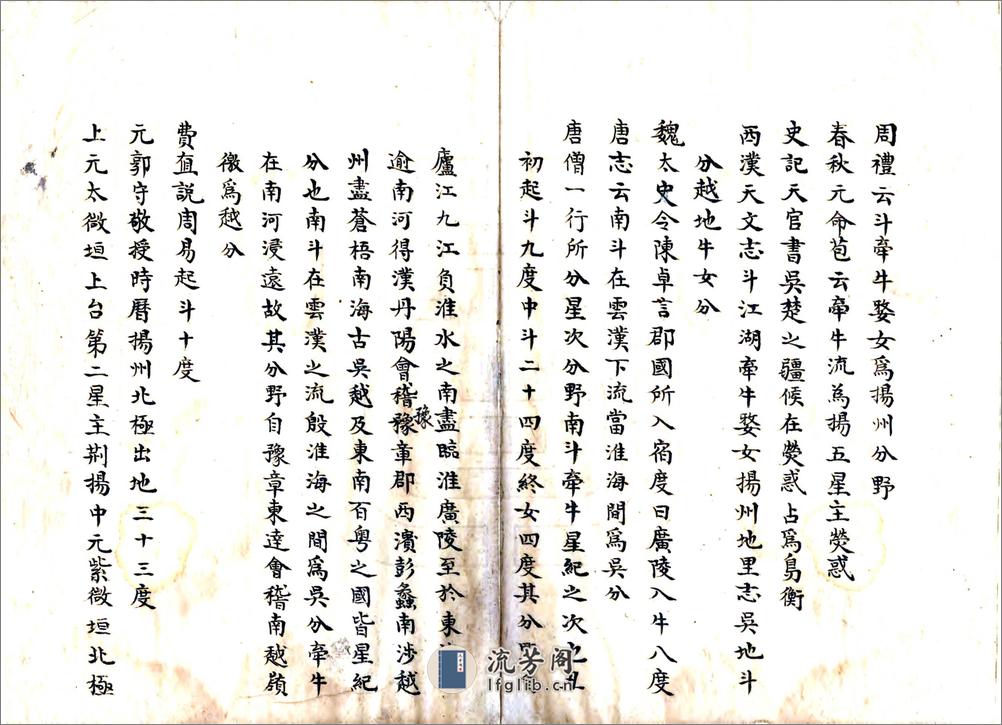 周禮云斗牽牛婺女爲揚州分野
春秋元命苞云牽牛流爲揚五星主熒惑
史記天官書吳楚之疆候在熒惑占爲鳥衡
西漢天文志斗江湖牽牛婺女揚州地里志吳地斗
分越地牛女分
魏太史令陳卓言郡國所入宿度曰廣陵入牛八度
唐志云南斗在雲漢下流當淮海間爲吳分
唐僧一行所分星次分野南斗牽牛星紀之次也丑
初起斗九度中斗二十四度終女四度其分野
廬江九江負淮水之南盡臨淮廣陵至於東
逾南河得漢丹陽會稽豫章郡西濱彭蠡南涉越
豫
州盡蒼梧南海古吳越及東南百粵之國皆星紀
分也南斗在雲漢之流殷淮海之間爲吳分牽牛
在南河浸遠故其分野自豫章東達會稽南越嶺
徼爲越分
費直説周易起斗十度
元郭守敬授時曆揚州北極出地三十三度
上元太微垣上台第二星主荆揚中元紫微垣北極
流芳阁
lfglib.cn